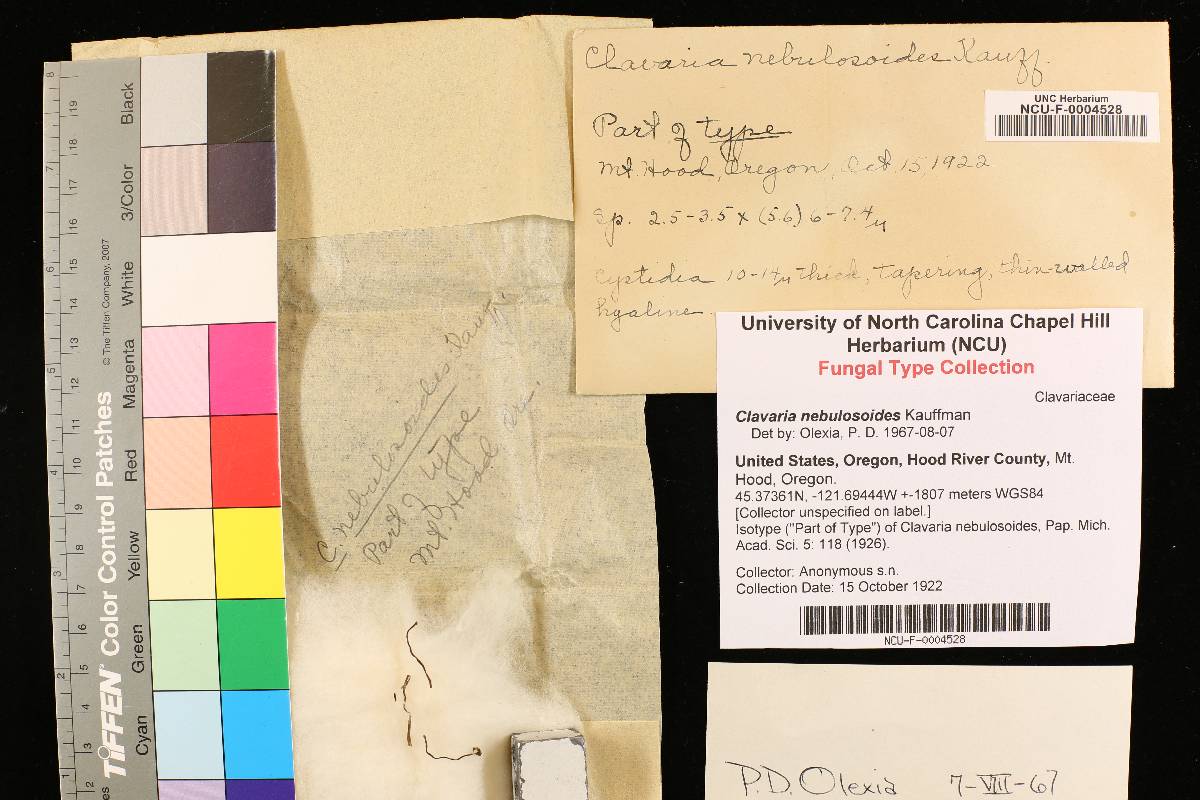 Clavaria nebulosoides Kauff.
UNC Herbarium
NCU-F-0004528
Part of type
Mt. Hood, Oregon, Oct. 15, 1922
Sp. 2.5-3.5 x (5.6) 6-7.4 µ
Cystidia 10-14µ thick, tapering, thin-walled
hyaline.
University of North Carolina Chapel Hill
Herbarium (NCU)
Fungal Type Collection
Clavariaceae
Clavaria nebulosoides Kauffman
Det by: Olexia, P. D. 1967-08-07
United States, Oregon, Hood River County, Mt.
Hood, Oregon.
45.37361N, -121.69444W +-1807 meters WGS84
[Collector unspecified on label.]
Isotype ("Part of Type") of Clavaria nebulosoides, Pap. Mich.
Acad. Sci. 5: 118 (1926).
Collector: Anonymous s.n.
Collection Date: 15 October 1922
NCU-F-0004528
P.D. Olexia 7-VIII-67
C. nebulosoides Kauff.
Part of type
Mt. Hood Ore.
TIFFEN Color Control Patches
© The Tiffen Company, 2007
Black
3/Color
White
Magenta
Red
Yellow
Green
Cyan
8
7
6
5
4
3
2
19
18
17
16
15
14
13
12
11
10
9
8
7
6
5
4
3
2